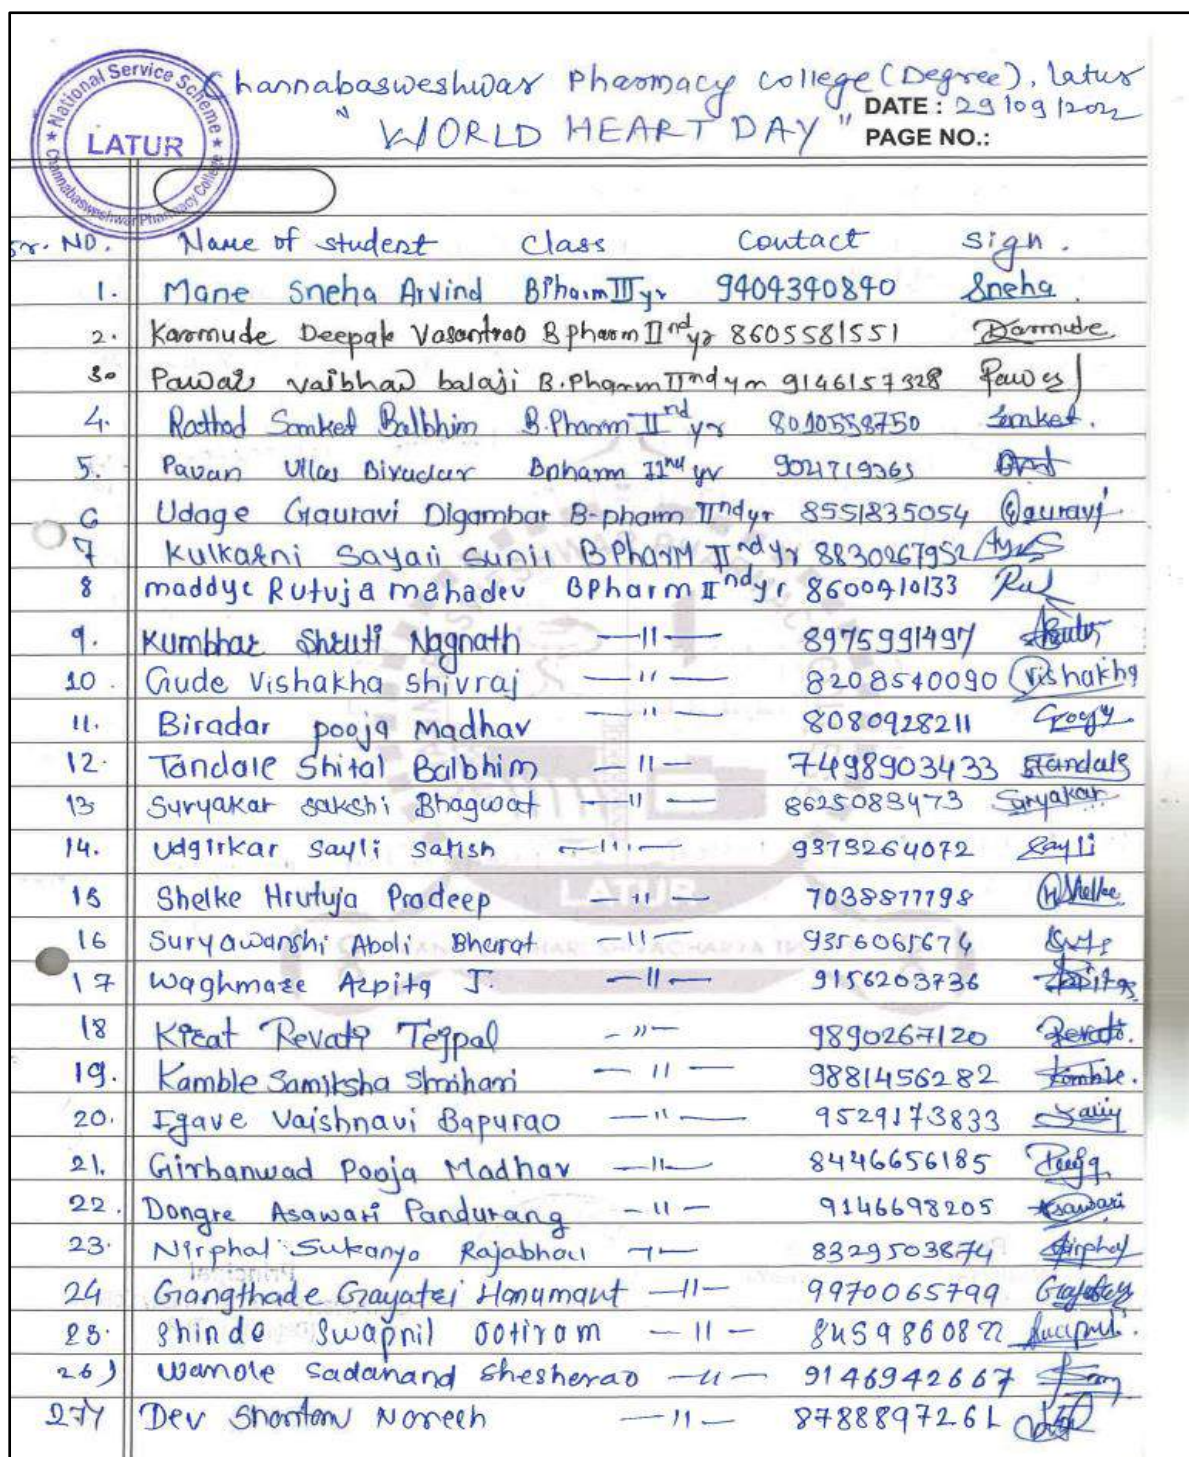 Channabasweshwar Pharmacy college (Degree), latur
" WORLD HEART DAY "
DATE : 29/09/2022
PAGE NO.:
National Service Scheme
LATUR
Channabasweshwar Pharmacy College
Sr. NO. Name of student Class Contact Sign.
1. Mane Sneha Arvind BPharm III yr 9404340840 Sneha
2. Karmude Deepak Vasantrao B pharm IInd yr 8605581551 Karmude
3. Pawar vaibhav balaji B.Pharm IInd yr 9146157328 Pawar
4. Rathod Sanket Balbhim B.Pharm IInd yr 8010558750 Sanket.
5. Pavan Ullas Biradar Bpharm IInd yr 9021719365
6 Udage Gauravi Digambar B-pharm IInd yr 8551835054 Gauravi
7 Kulkarni Sayali Sunil BPharm IInd yr 8830267952
8 maddye Rutuja mahadev BPharm IInd yr 8600910133
9. Kumbhar Shruti Nagnath —11— 8975991497
10. Gude Vishakha Shivraj —11— 8208540090 Vishakha
11. Biradar pooja Madhav —11— 8080928211
12. Tandale Shital Balbhim —11— 7498903433 Standale
13 Suryakar sakshi Bhagwat —11— 8625083473 Suryakar
14. Udgirkar Sayli Satish —11— 9373264072 Sayli
15 Shelke Hrutuja Pradeep —11— 7038877798 HShelke
16 Suryawanshi Aboli Bharat —11— 9356065674
17 Waghmare Arpita J. —11— 9156203736 Arpita
18 Kirat Revati Tejpal —11— 9890267120 Revati.
19. Kamble Samiksha Shrihari —11— 9881456282 Kamble.
20. Igave Vaishnavi Bapurao —11— 9529173833
21. Girbanwad Pooja Madhav —11— 8446656185 Pooja
22. Dongre Asawari Pandurang —11— 9146698205 Asawari
23. Nirphal Sukanya Rajabhau —11— 8329503874 Nirphal
24 Gangthade Gayatri Hanumant —11— 9970065799 Gayatri
25. Shinde Swapnil Dotiram —11— 8459860877 Swapnil.
26) Wanole Sadanand Shesherao —11— 9146942667
27) Dev Shantanu Naresh —11— 8788897261
LATUR